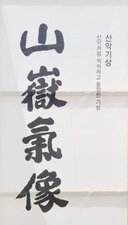 山嶽氣像
산악기상
산악처럼 씩씩하고 웅장한 기상